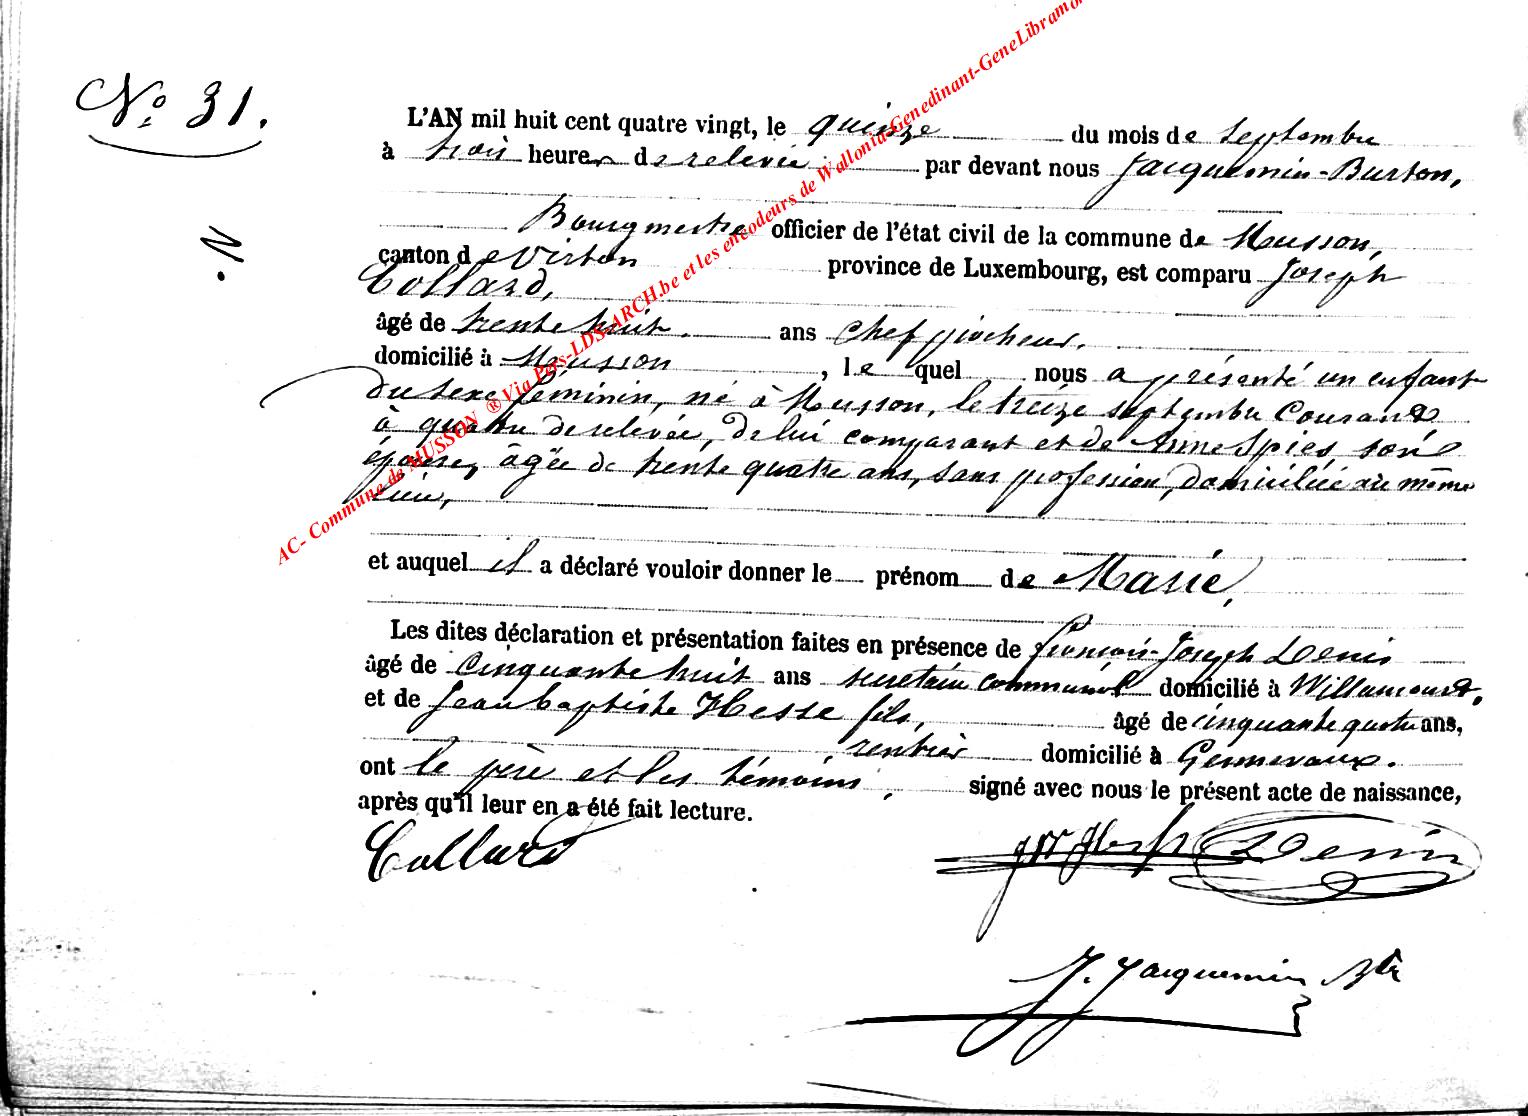 N° 31.
L'AN mil huit cent quatre vingt, le quinze du mois de septembre
à trois heures de relevée par devant nous Jacquemin-Burton,
Bourgmestre officier de l'état civil de la commune de Musson,
canton de Virton province de Luxembourg, est comparu Joseph
Collard,
âgé de trente huit ans chef piocheur,
domicilié à Musson, le quel nous a présenté un enfant
du sexe féminin, né à Musson, le treize septembre courant
à quatre de relevée, de lui comparant et de Anne Spies son
épouse, âgée de trente quatre ans, sans profession, domiciliée au même
lieu,
et auquel il a déclaré vouloir donner le prénom de Marie,
Les dites déclaration et présentation faites en présence de François-Joseph Denis
âgé de cinquante huit ans secretaire communal domicilié à Willancourt,
et de Jean baptiste Hesse fils, âgé de cinquante quatre ans,
rentier domicilié à Gennevaux.
ont le père et les témoins, signé avec nous le présent acte de naissance,
après qu'il leur en a été fait lecture.
Collard
Denis
J. Jacquemin
AC- Commune de MUSSON ® Via Pers-LDS-ARCH.be et les encodeurs de Wallonia-Genedinant-GeneLibramo